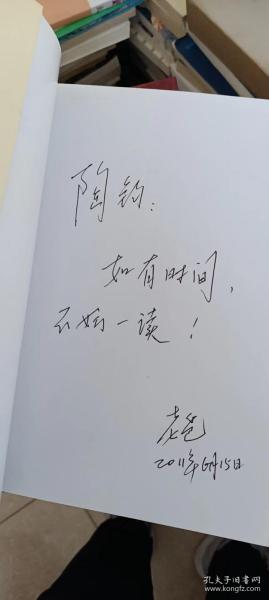 陶钧：
如有时间，
不妨一读！
老爸
2011年6月15日
孔夫子旧书网
www.kongfz.com